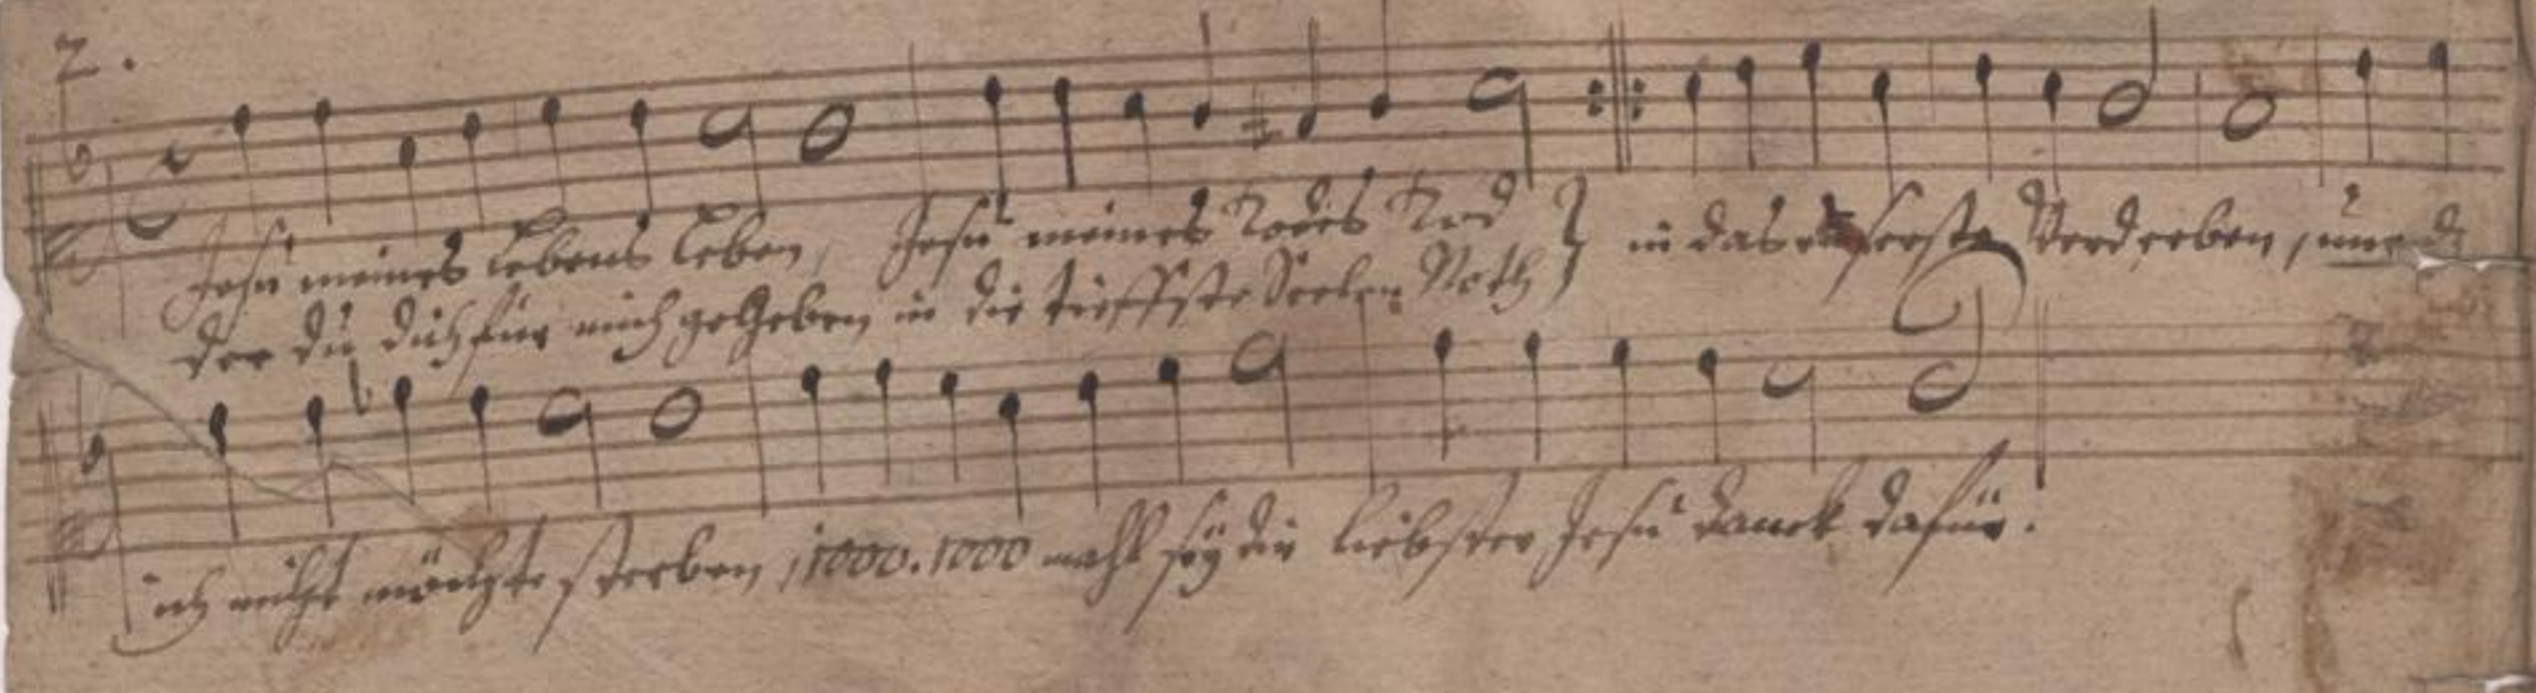 2.
Jesu meines Lebens Leben, Jesu meines Todes Tod } in das eüserste Verderben, nur d
der du dich für mich gegeben in die tieffste Seelen Noth
ich nicht möchte sterben, 1000. 1000 mahl seÿ dir liebster Jesu danck dafür.